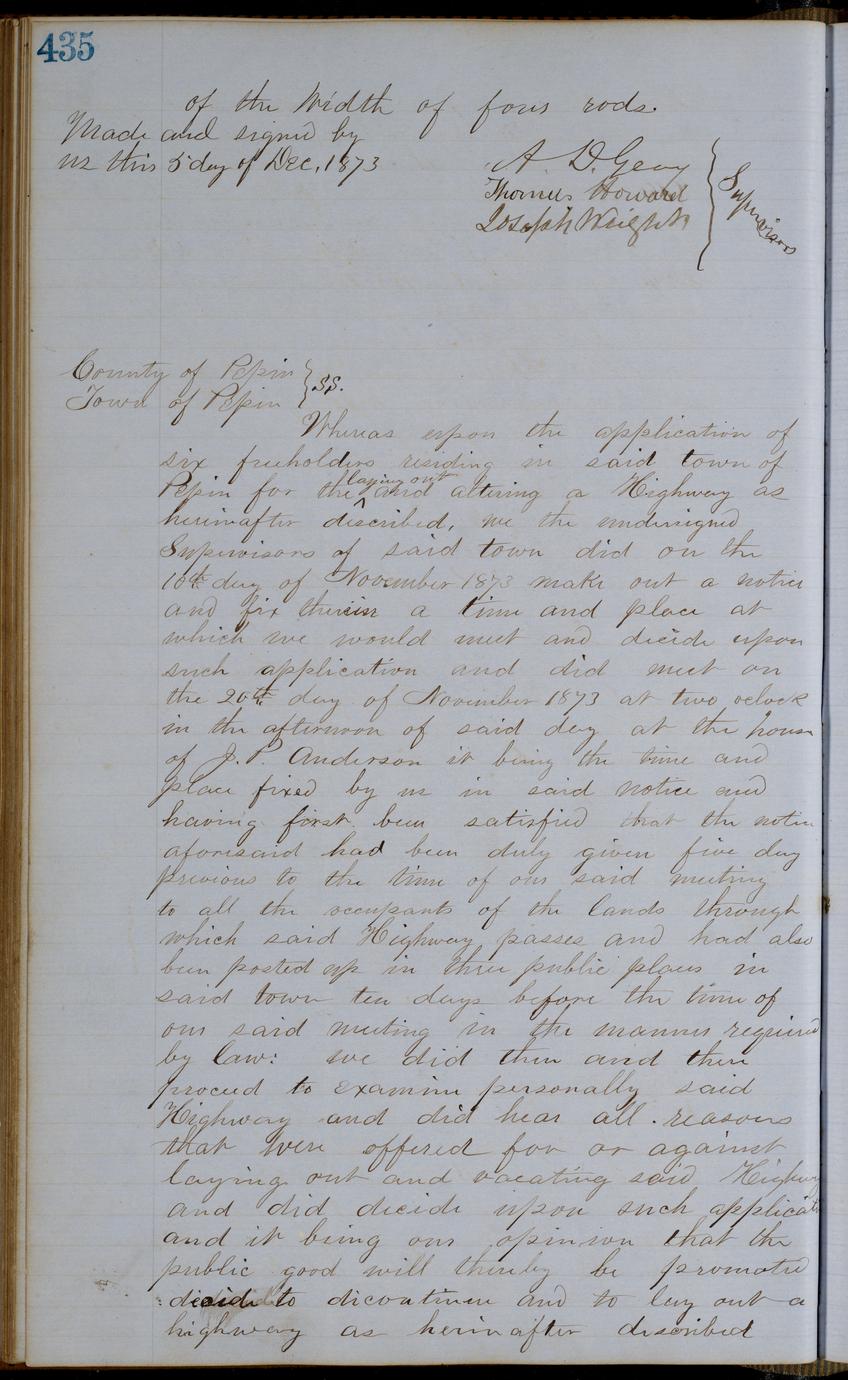 435
of the Width of four rods.
Made and signed by
us this 5 day of Dec, 1873
A. D. Geay
Thomas Howard
Joseph Wright
Supervisors
County of Pepin
Town of Pepin } SS.
Whereas upon the application of
six freeholders residing in said town of
Pepin for the ^laying out and altering a Highway as
herinafter described, we the undersigned
Supervisors of said town did on the
10th day of November 1873 make out a notice
and fix therein a time and place at
which we would meet and decide upon
such application and did meet on
the 20th day of November 1873 at two oclock
in the afternoon of said day at the house
of J. P. Anderson it being the time and
place fixed by us in said notice and
having first been satisfied that the notice
aforesaid had been duly given five day
previous to the time of our said meeting
to all the occupants of the lands through
which said Highway passes and had also
been posted up in three public places in
said town ten days before the time of
our said meeting in the manner required
by law: we did then and there
proceed to examine personally said
Highway and did hear all reasons
that were offered for or against
laying out and vacating said Highway
and did decide upon such applicat
and it being our opinion that the
public good will thereby be promoted
decide to dicontinue and to lay out a
highway as herinafter described